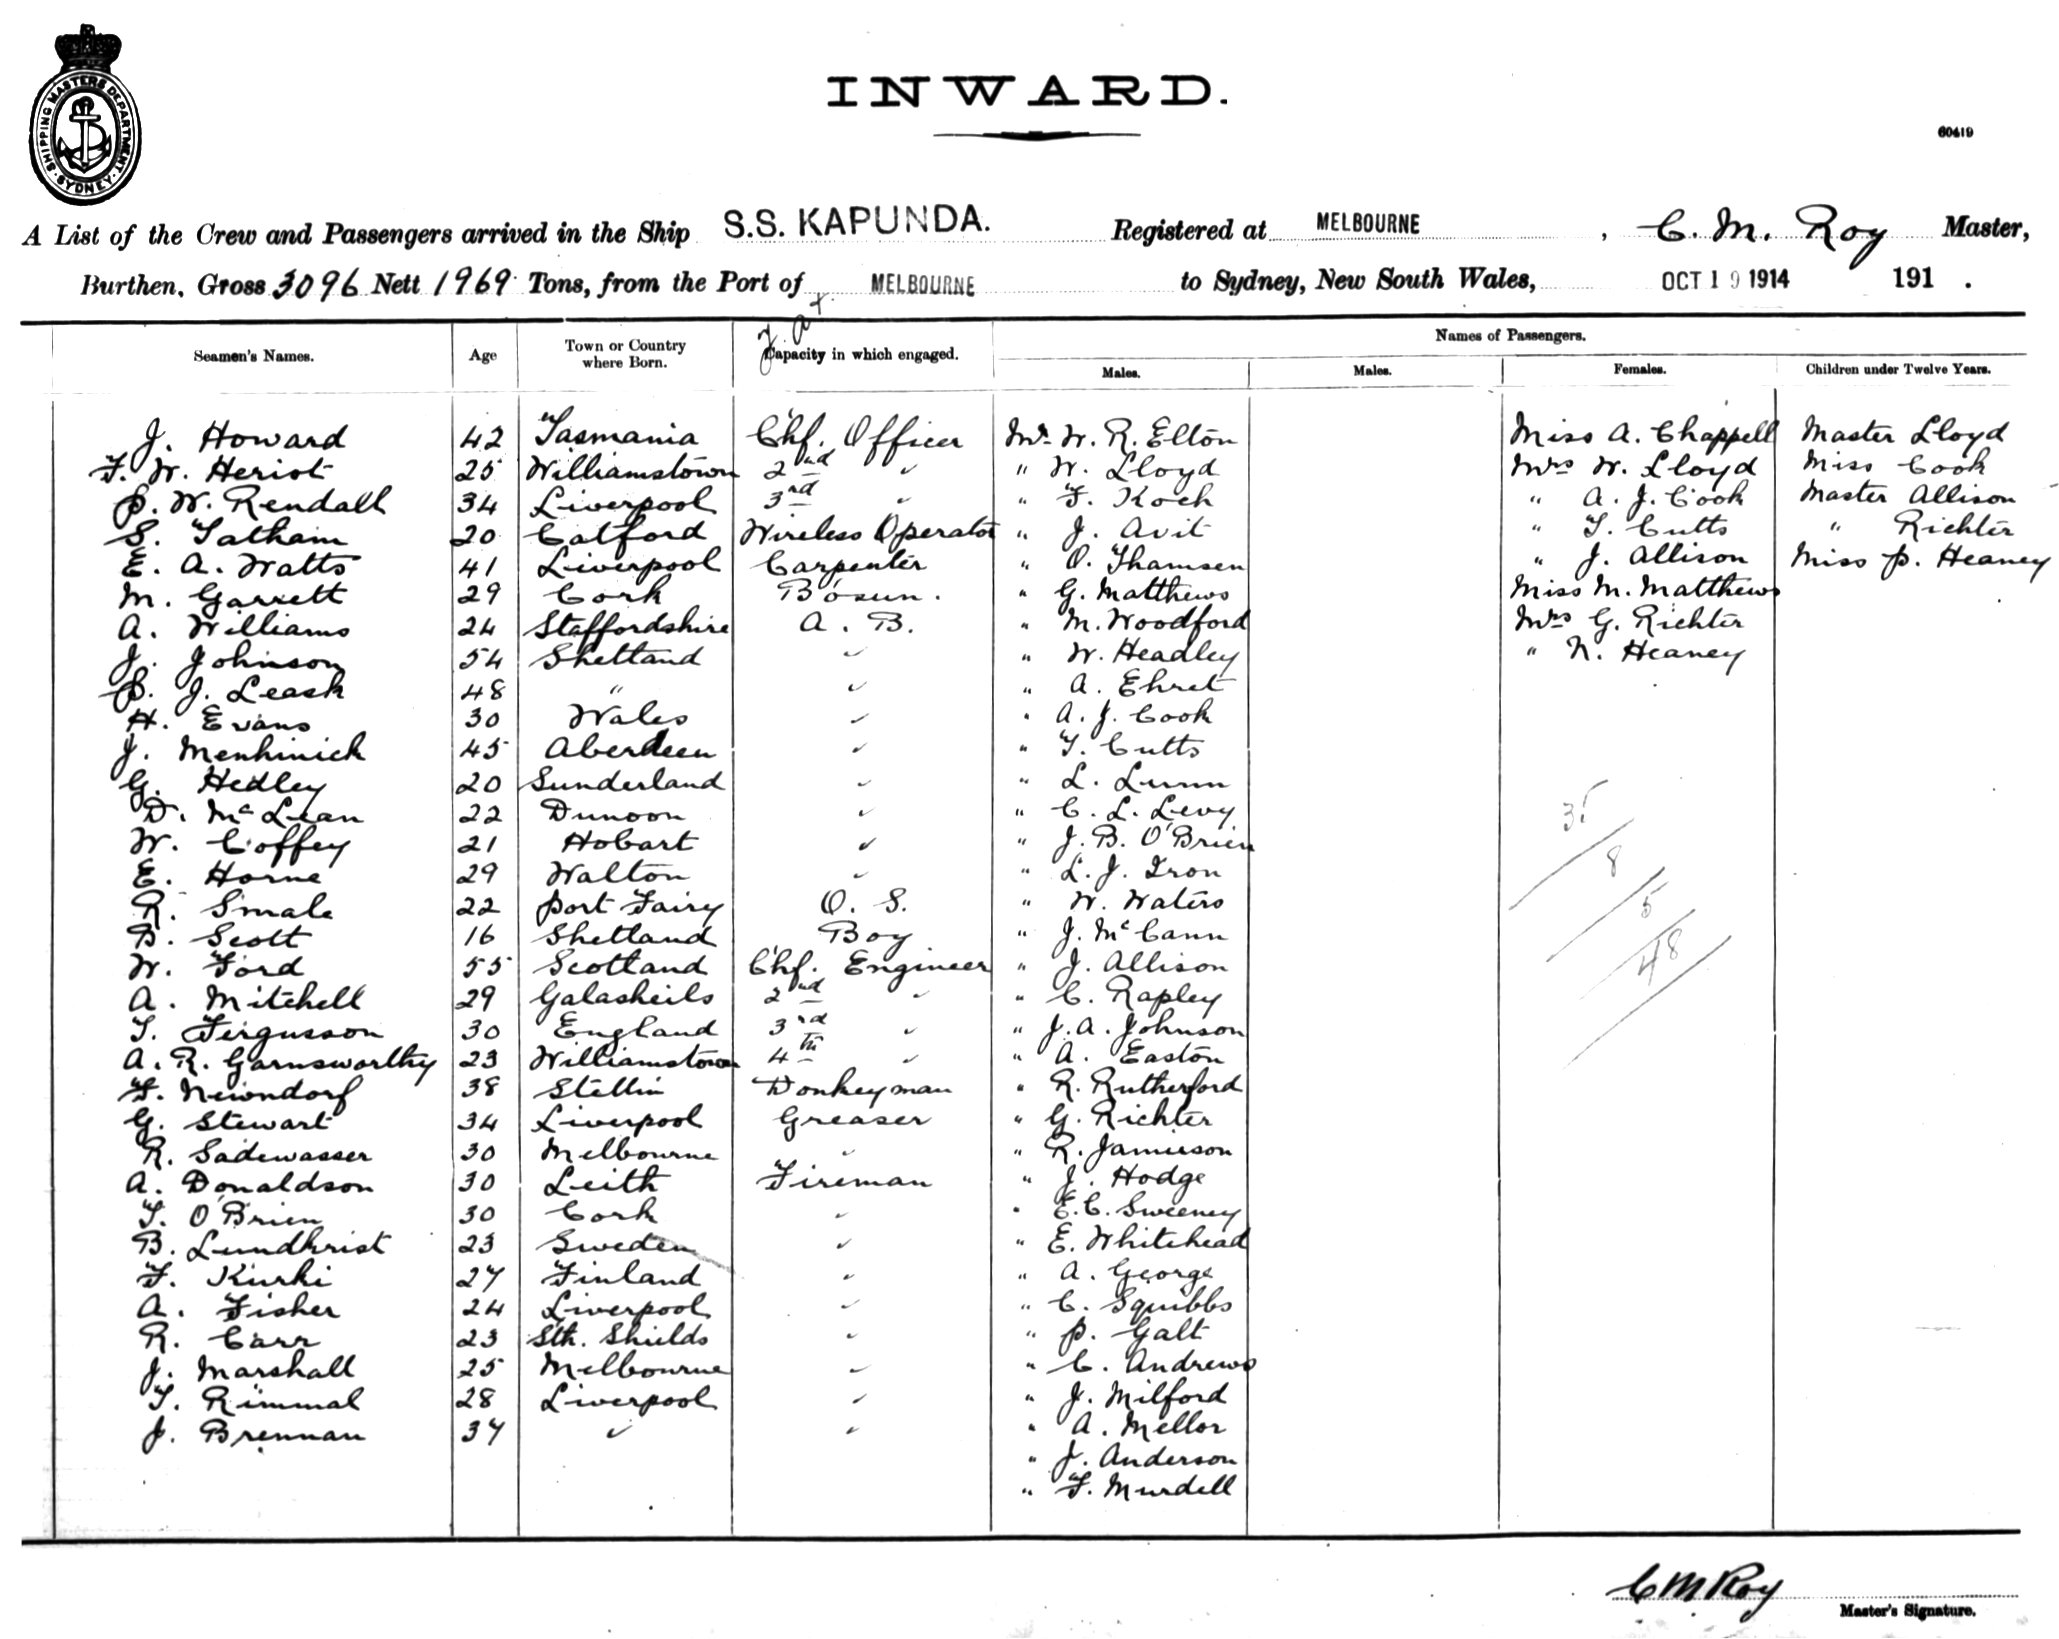 SHIPPING MASTERS DEPARTMENT. SYDNEY.
INWARD.
60419
A List of the Crew and Passengers arrived in the Ship S.S. KAPUNDA. Registered at MELBOURNE, C. M. Roy Master,
Burthen, Gross 3096 Nett 1969 Tons, from the Port of MELBOURNE to Sydney, New South Wales, OCT 19 1914 191 .
Seamen's Names. Age Town or Country where Born. Capacity in which engaged. Names of Passengers.
Males. Males. Females. Children under Twelve Years.
J. Howard 42 Tasmania Chf. Officer Mr. W. R. Elton Miss A. Chappell Master Lloyd
F. W. Heriot 25 Williamstown 2nd " " W. Lloyd Mrs W. Lloyd Miss Cook
P. W. Rendall 34 Liverpool 3rd " " F. Koch " A. J. Cook Master Allison
S. Tatham 20 Catford Wireless Operator " J. Avit " T. Cutts " Richter
E. A. Watts 41 Liverpool Carpenter " O. Thamsen " J. Allison Miss P. Heaney
M. Garrett 29 Cork Bosun. " G. Matthews Miss M. Matthews
A. Williams 24 Staffordshire A. B. " M. Woodford Mrs G. Richter
J. Johnson 54 Shetland " " W. Headley " N. Heaney
P. J. Leask 48 " " " A. Ehret
H. Evans 30 Wales " " A. J. Cook
J. Menhinick 45 Aberdeen " " T. Cutts
G. Hedley 20 Sunderland " " L. Lunn
D. McLean 22 Dunoon " " C. L. Levy
W. Coffey 21 Hobart " " J. B. O'Brien
E. Horne 29 Walton " " L. J. Iron
R. Smale 22 Port Fairy O. S. " W. Waters
B. Scott 16 Shetland Boy " J. McCann
W. Ford 55 Scotland Chf. Engineer " J. Allison
A. Mitchell 29 Galasheils 2nd " " C. Rapley
T. Fergusson 30 England 3rd " " J. A. Johnson
A. R. Garnsworthy 23 Williamstown 4th " " A. Easton
F. Neindorf 38 Stettin Donkeyman " R. Rutherford
G. Stewart 34 Liverpool Greaser " G. Richter
R. Sadewasser 30 Melbourne " " R. Jamieson
A. Donaldson 30 Leith Fireman " J. Hodge
T. O'Brien 30 Cork " " E. C. Sweeney
B. Lundkrist 23 Sweden " " E. Whitehead
F. Kurki 27 Finland " " A. George
A. Fisher 24 Liverpool " " C. Squibbs
R. Carr 23 Sth. Shields " " P. Galt
J. Marshall 25 Melbourne " " C. Andrews
T. Rimmal 28 Liverpool " " J. Milford
J. Brennan 37 " " " A. Mellor
" J. Anderson
" F. Murdell
35
8
5
48
C M Roy
Master's Signature.